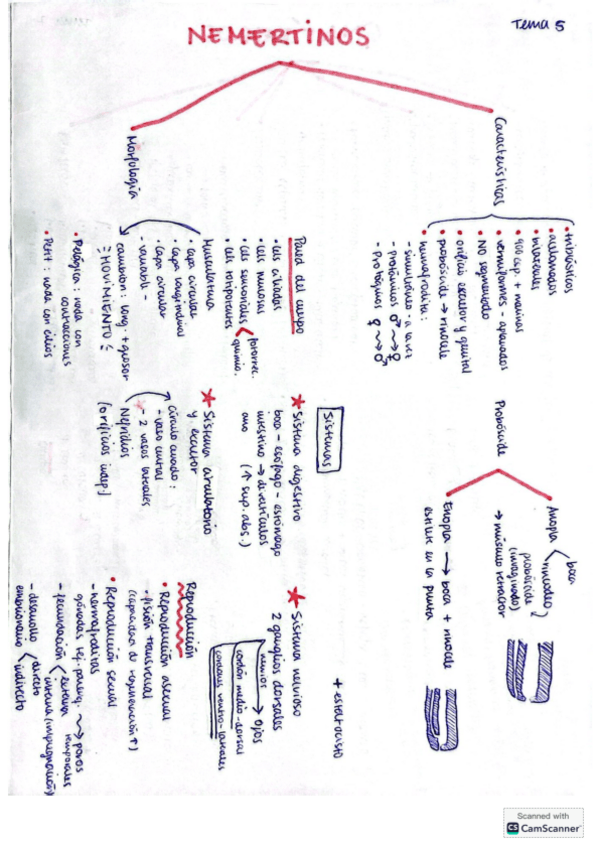 Tema 5
NEMERTINOS
Características
• triblásticos
• acelomados
• bilaterales
• 900 esp. + marinas
• vermiformes - aplanados
• NO segmentado
• orificio excretor y genital
• probóscide → rincocele
• hermafrodita:
- simultáneo - a la vez
- Protándricos ♂ ⇝ ♀
- Protóginos ♀ ⇝ ♂
Probóscide
Anopla
boca
rincodeo
probóscide
(invaginado)
→ músculo retractor
Enopla → boca + rincocele
estilete en la punta
Morfología
Pared del cuerpo
• cels ciliadas
• cels mucosas
• cels sensoriales
fotorrec.
quimio.
• cels totipotentes
Musculatura
• capa circular
• capa longitudinal
• capa circular
- variable -
cambian: long. + grosor
MOVIMIENTO
• Pelágica: nada con
contracciones
• Petit: nada con cilios
Sistemas
* Sistema digestivo
boca - esófago - estómago
intestino → divertículos
ano (↑ sup. abs.)
* Sistema circulatorio
y excretor
círculo cerrado:
- vaso central
- 2 vasos laterales
Nefridios
(orificios indep.)
* Sistema nervioso
2 ganglios dorsales
nervios → ojos
cordón medio-dorsal
cordones ventro-laterales
+ estatocisto
Reproducción
• Reproducción asexual
- fisión transversal
(capacidad de regeneración ↑)
• Reproducción sexual
- hermafroditas
gónadas
⇝ poros
temporales
- fecundación
externa
interna (impregnación)
- desarrollo
embrionario
directo
indirecto
Scanned with
CS CamScanner